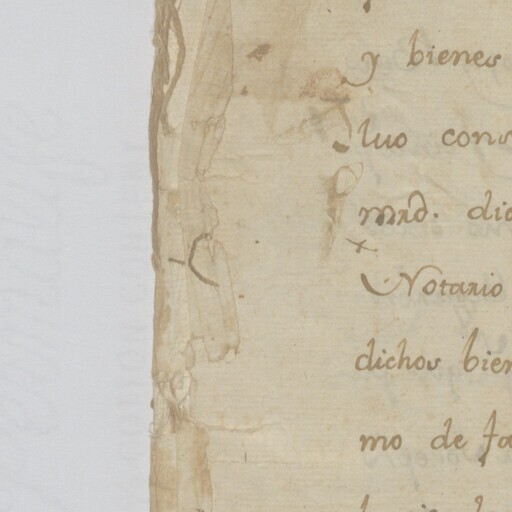 y bienes
luo cons
mrd. dic
Notario
dichos bien
mo de fa